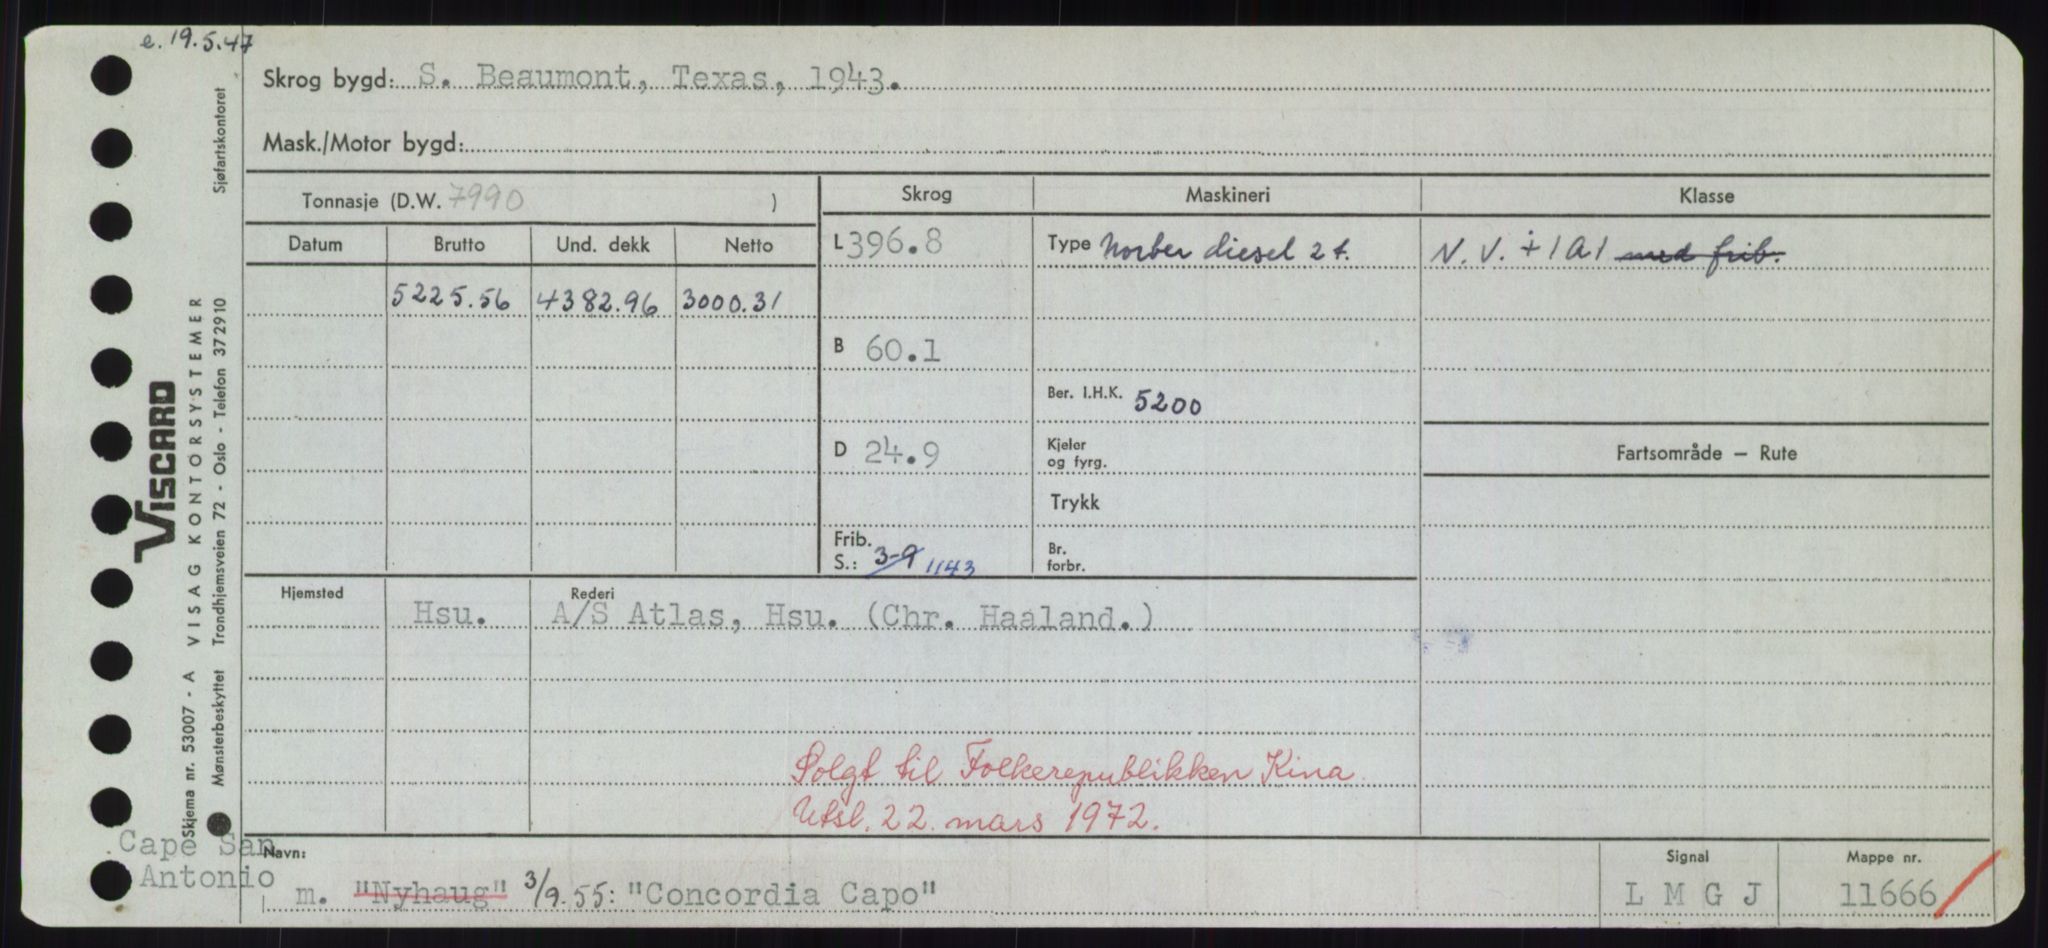 e. 19.5.47
Skrog bygd: S. Beaumont, Texas, 1943.
Mask./Motor bygd:
Tonnasje (D.W. 7990 )
Skrog
Maskineri
Klasse
Datum Brutto Und. dekk Netto
L 396.8
Type Norber diesel 2 t.
N. V. + 1A1 med frib.
5225.56 4382.96 3000.31
B 60.1
Ber. I.H.K. 5200
D 24.9
Kjeler
og fyrg.
Fartsområde — Rute
Trykk
Frib.
S.: 3-9 1143
Br.
forbr.
Hjemsted
Rederi
Hsu. A/S Atlas, Hsu. (Chr. Haaland.)
Solgt til Folkerepublikken Kina.
Utsl. 22. mars 1972.
Cape San
Antonio
Navn:
m. "Nyhaug" 3/9.55: "Concordia Capo"
Signal
L M G J
Mappe nr.
11666
VISCARD
VISAG KONTORSYSTEMER
Skjema nr. 53007 - A
Mønsterbeskyttet Trondhjemsveien 72 - Oslo - Telefon 372910 Sjøfartskontoret